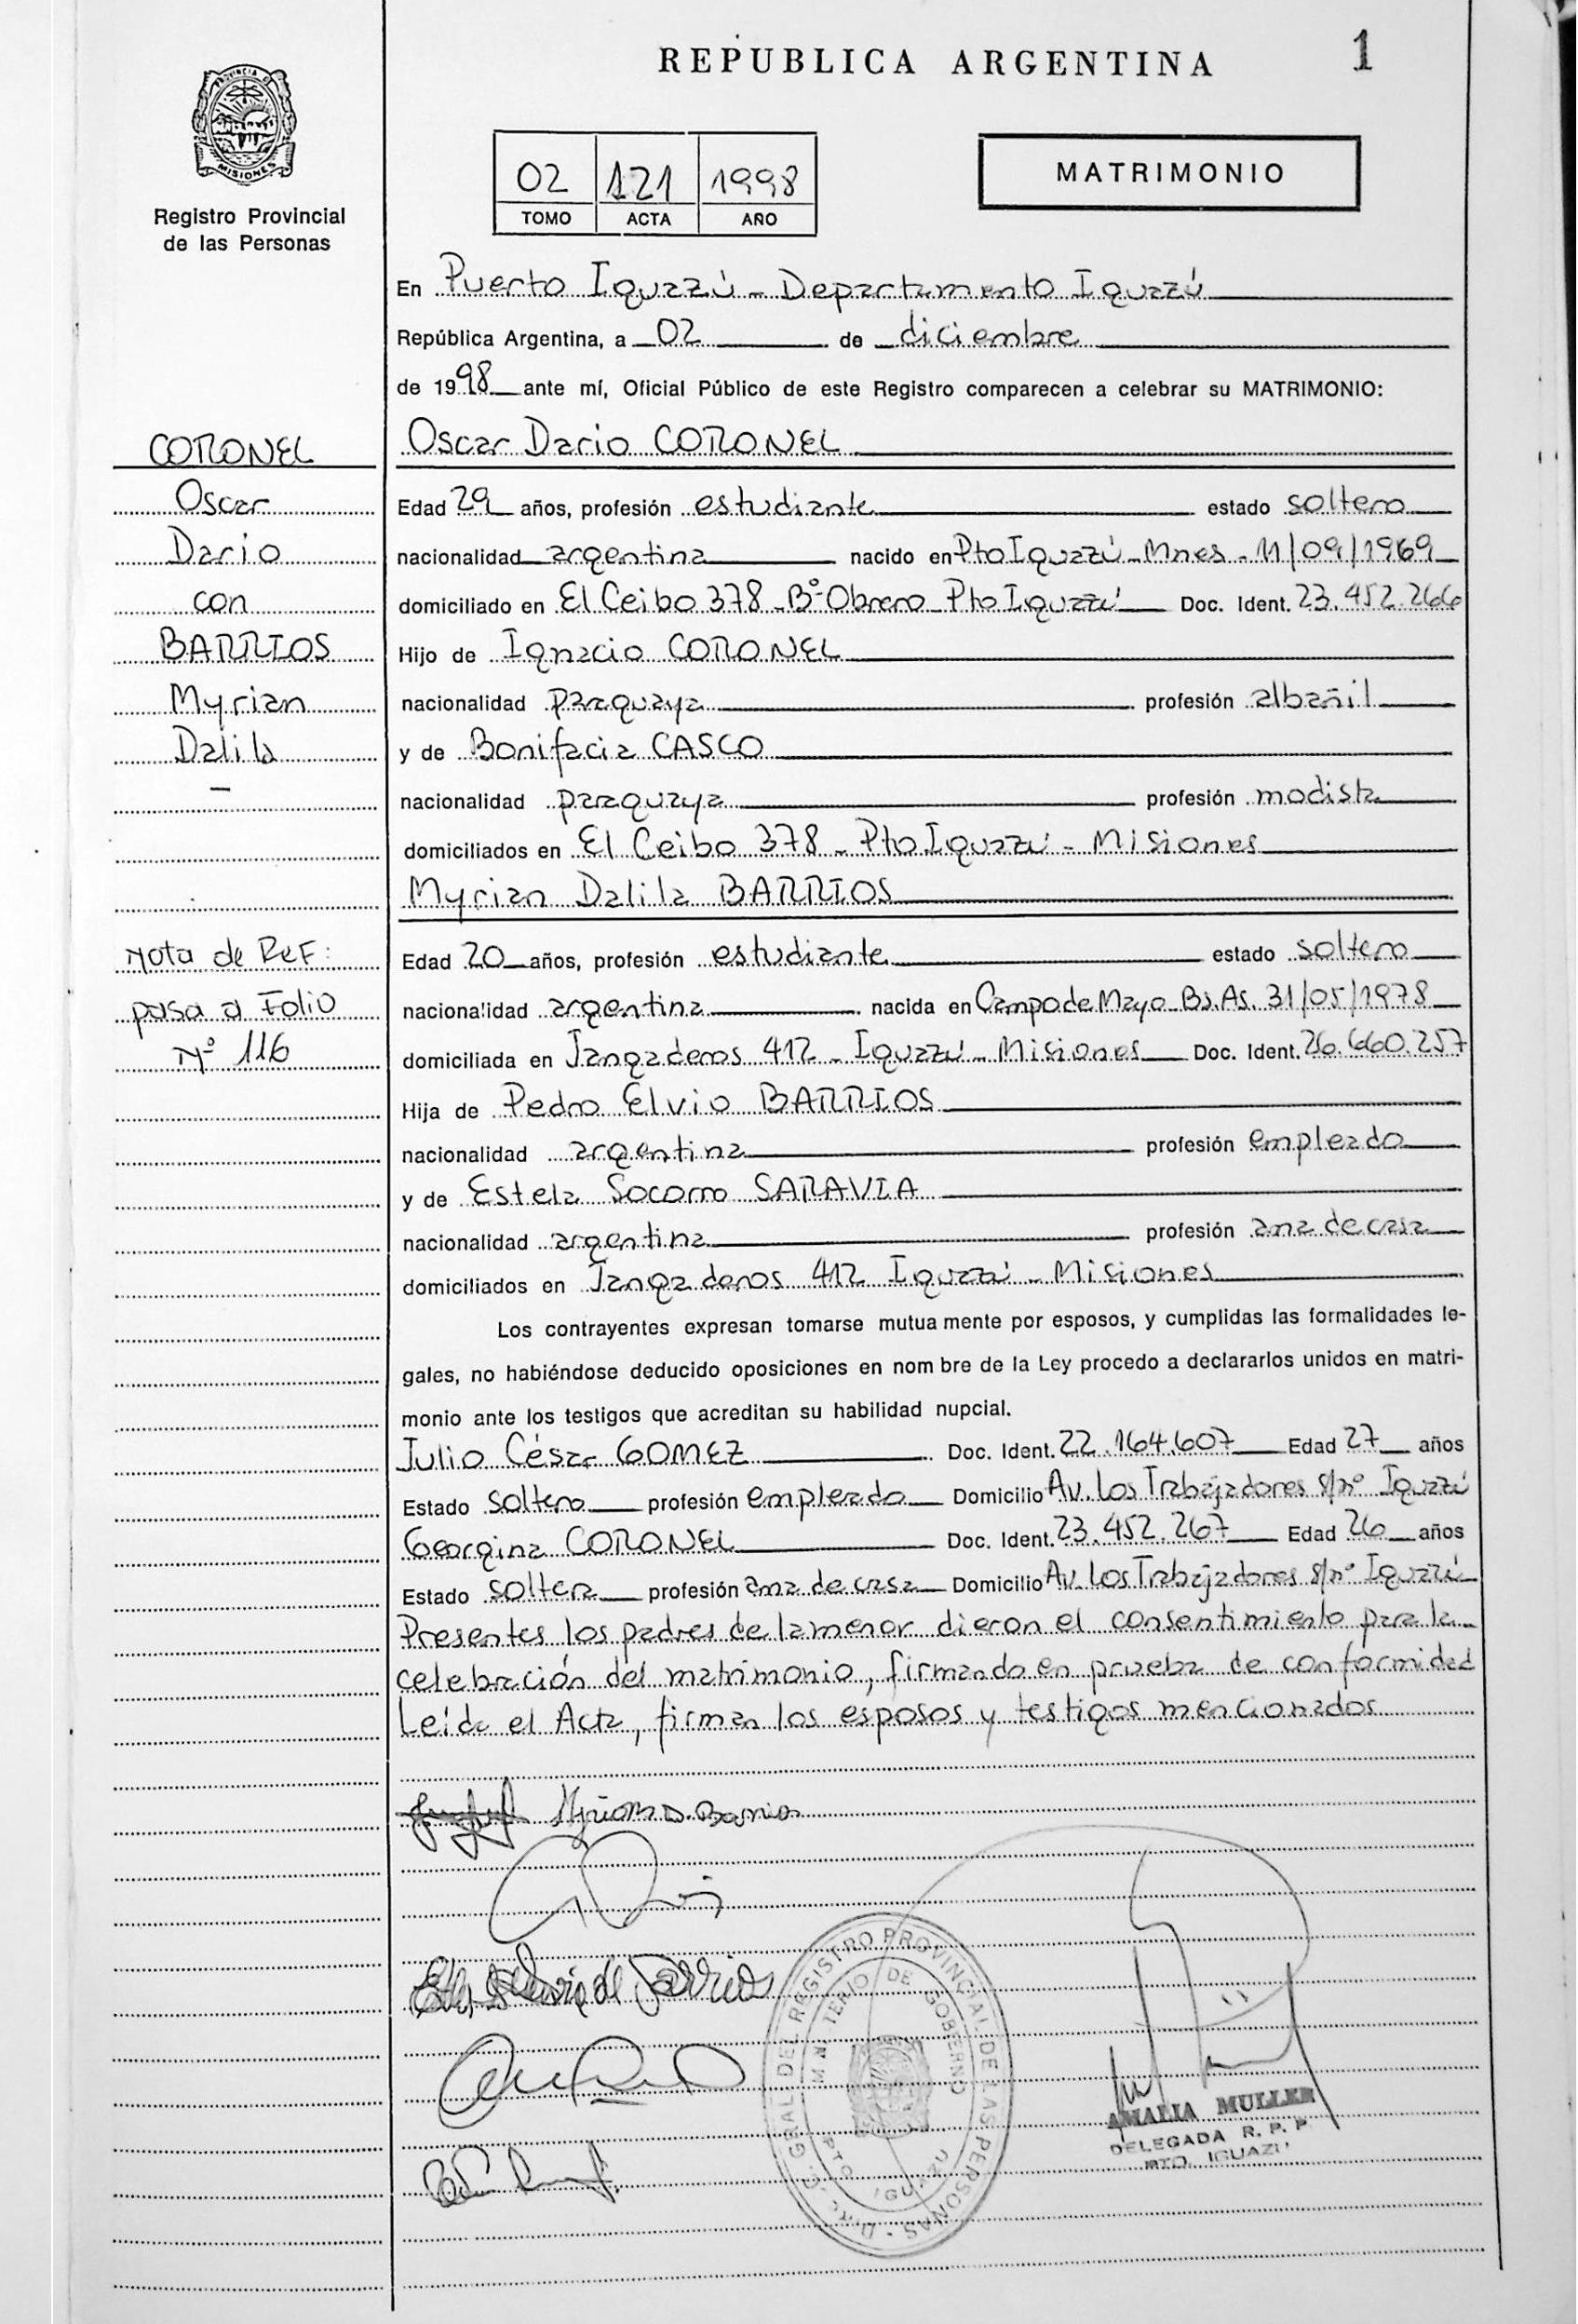 REPUBLICA ARGENTINA
1
PROVINCIA DE
MISIONES
Registro Provincial
de las Personas
02 121 1998
TOMO ACTA AÑO
MATRIMONIO
En Puerto Iguazú - Departamento Iguazú
República Argentina, a 02 de diciembre
de 1998 ante mí, Oficial Público de este Registro comparecen a celebrar su MATRIMONIO:
CORONEL
Oscar
Dario
con
BARRIOS
Myrian
Dalila
-
Nota de Ref:
pasa a Folio
Nº 116
Oscar Dario CORONEL
Edad 29 años, profesión estudiante estado soltero
nacionalidad argentina nacido en Pto Iguazú - Mnes - 11/09/1969
domiciliado en El Ceibo 378 - Bº Obrero - Pto Iguazú Doc. Ident. 23.452.266
Hijo de Ignacio CORONEL
nacionalidad paraguaya profesión albañil
y de Bonifacia CASCO
nacionalidad paraguaya profesión modista
domiciliados en El Ceibo 378 - Pto Iguazú - Misiones
Myrian Dalila BARRIOS
Edad 20 años, profesión estudiante estado soltero
nacionalidad argentina nacida en Campo de Mayo - Bs. As. 31/05/1978
domiciliada en Jangaderos 412 - Iguazú - Misiones Doc. Ident. 26.660.257
Hija de Pedro Elvio BARRIOS
nacionalidad argentina profesión empleado
y de Estela Socorro SARAVIA
nacionalidad argentina profesión ama de casa
domiciliados en Jangaderos 412 Iguazú - Misiones
Los contrayentes expresan tomarse mutuamente por esposos, y cumplidas las formalidades le-
gales, no habiéndose deducido oposiciones en nombre de la Ley procedo a declararlos unidos en matri-
monio ante los testigos que acreditan su habilidad nupcial.
Julio César GOMEZ Doc. Ident. 22.164.607 Edad 27 años
Estado soltero profesión empleado Domicilio Av. Los Trabajadores s/nº Iguazú
Georgina CORONEL Doc. Ident. 23.452.267 Edad 26 años
Estado soltera profesión ama de casa Domicilio Av. Los Trabajadores s/nº Iguazú
Presentes los padres de la menor dieron el consentimiento para la
celebración del matrimonio, firmando en prueba de conformidad
Leída el Acta, firman los esposos y testigos mencionados
Myrian D. Barrios
de Barrios
DIRC. GRAL DEL REGISTRO PROVINCIAL DE LAS PERSONAS
MINISTERIO DE GOBIERNO
PTO IGUAZU
AMALIA MULLER
DELEGADA R. P. P
PTO. IGUAZU